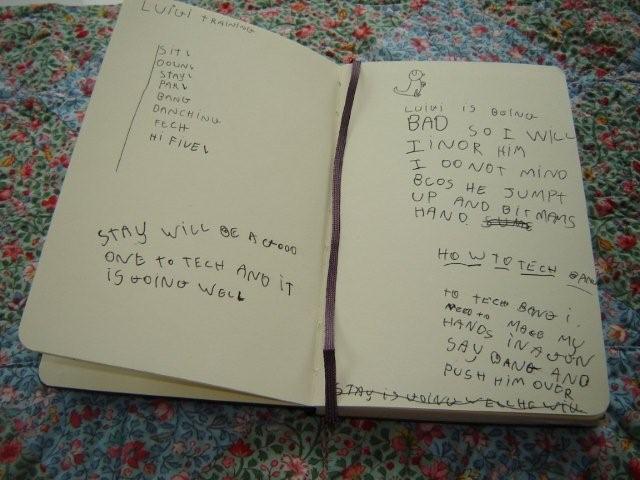 LUIGI TRAINING
SIT
DOWN
STAY
PAR
BANG
DANCHING
FECH
HI FIVE
STAY WILL BE A GOOD
ONE TO TECH AND IT
IS GOING WELL
LUIGI IS BEING
BAD SO I WILL
IINOR HIM
I DO NOT MIND
BCOS HE JUMPT
UP AND BIT MAMS
HAND.
HOW TO TECH BANG
TO TECH BANG I
NEED TO MAKE MY
HANDS IN A GUN
SAY BANG AND
PUSH HIM OVER
STAY IS GOING WELL HE WILL